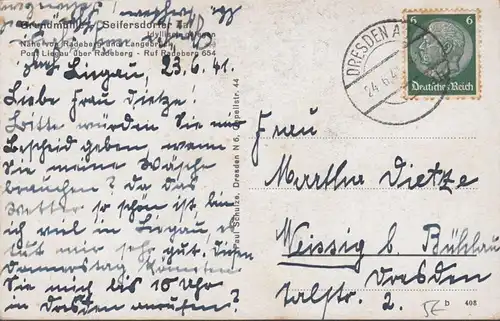 Grundmühle - Seifersdorfer Tal
Idyllisch gelegen
Nähe von Radeberg und Langebrück
Post Liegau über Radeberg - Ruf Radeberg 654
Liegau, 23.6.41.
Liebe Frau Dietze!
Bitte würden Sie mir
Bescheid geben, wann
Sie meine Wäsche
brauchen? Da das
Wetter so schön ist, bin
ich viel in Liegau, es
tut mir sehr gut. Diesen
Donnerstag könnten
Sie mich bis 10 Uhr
in Dresden anrufen?
Paul Schulze, Dresden N 6, Capellstr. 44
DRESDEN A
24.6.4
6 6
Deutsches Reich
Frau
Martha Dietze
Weissig b. Bühlau
Dresden
Talstr. 2.
D 408